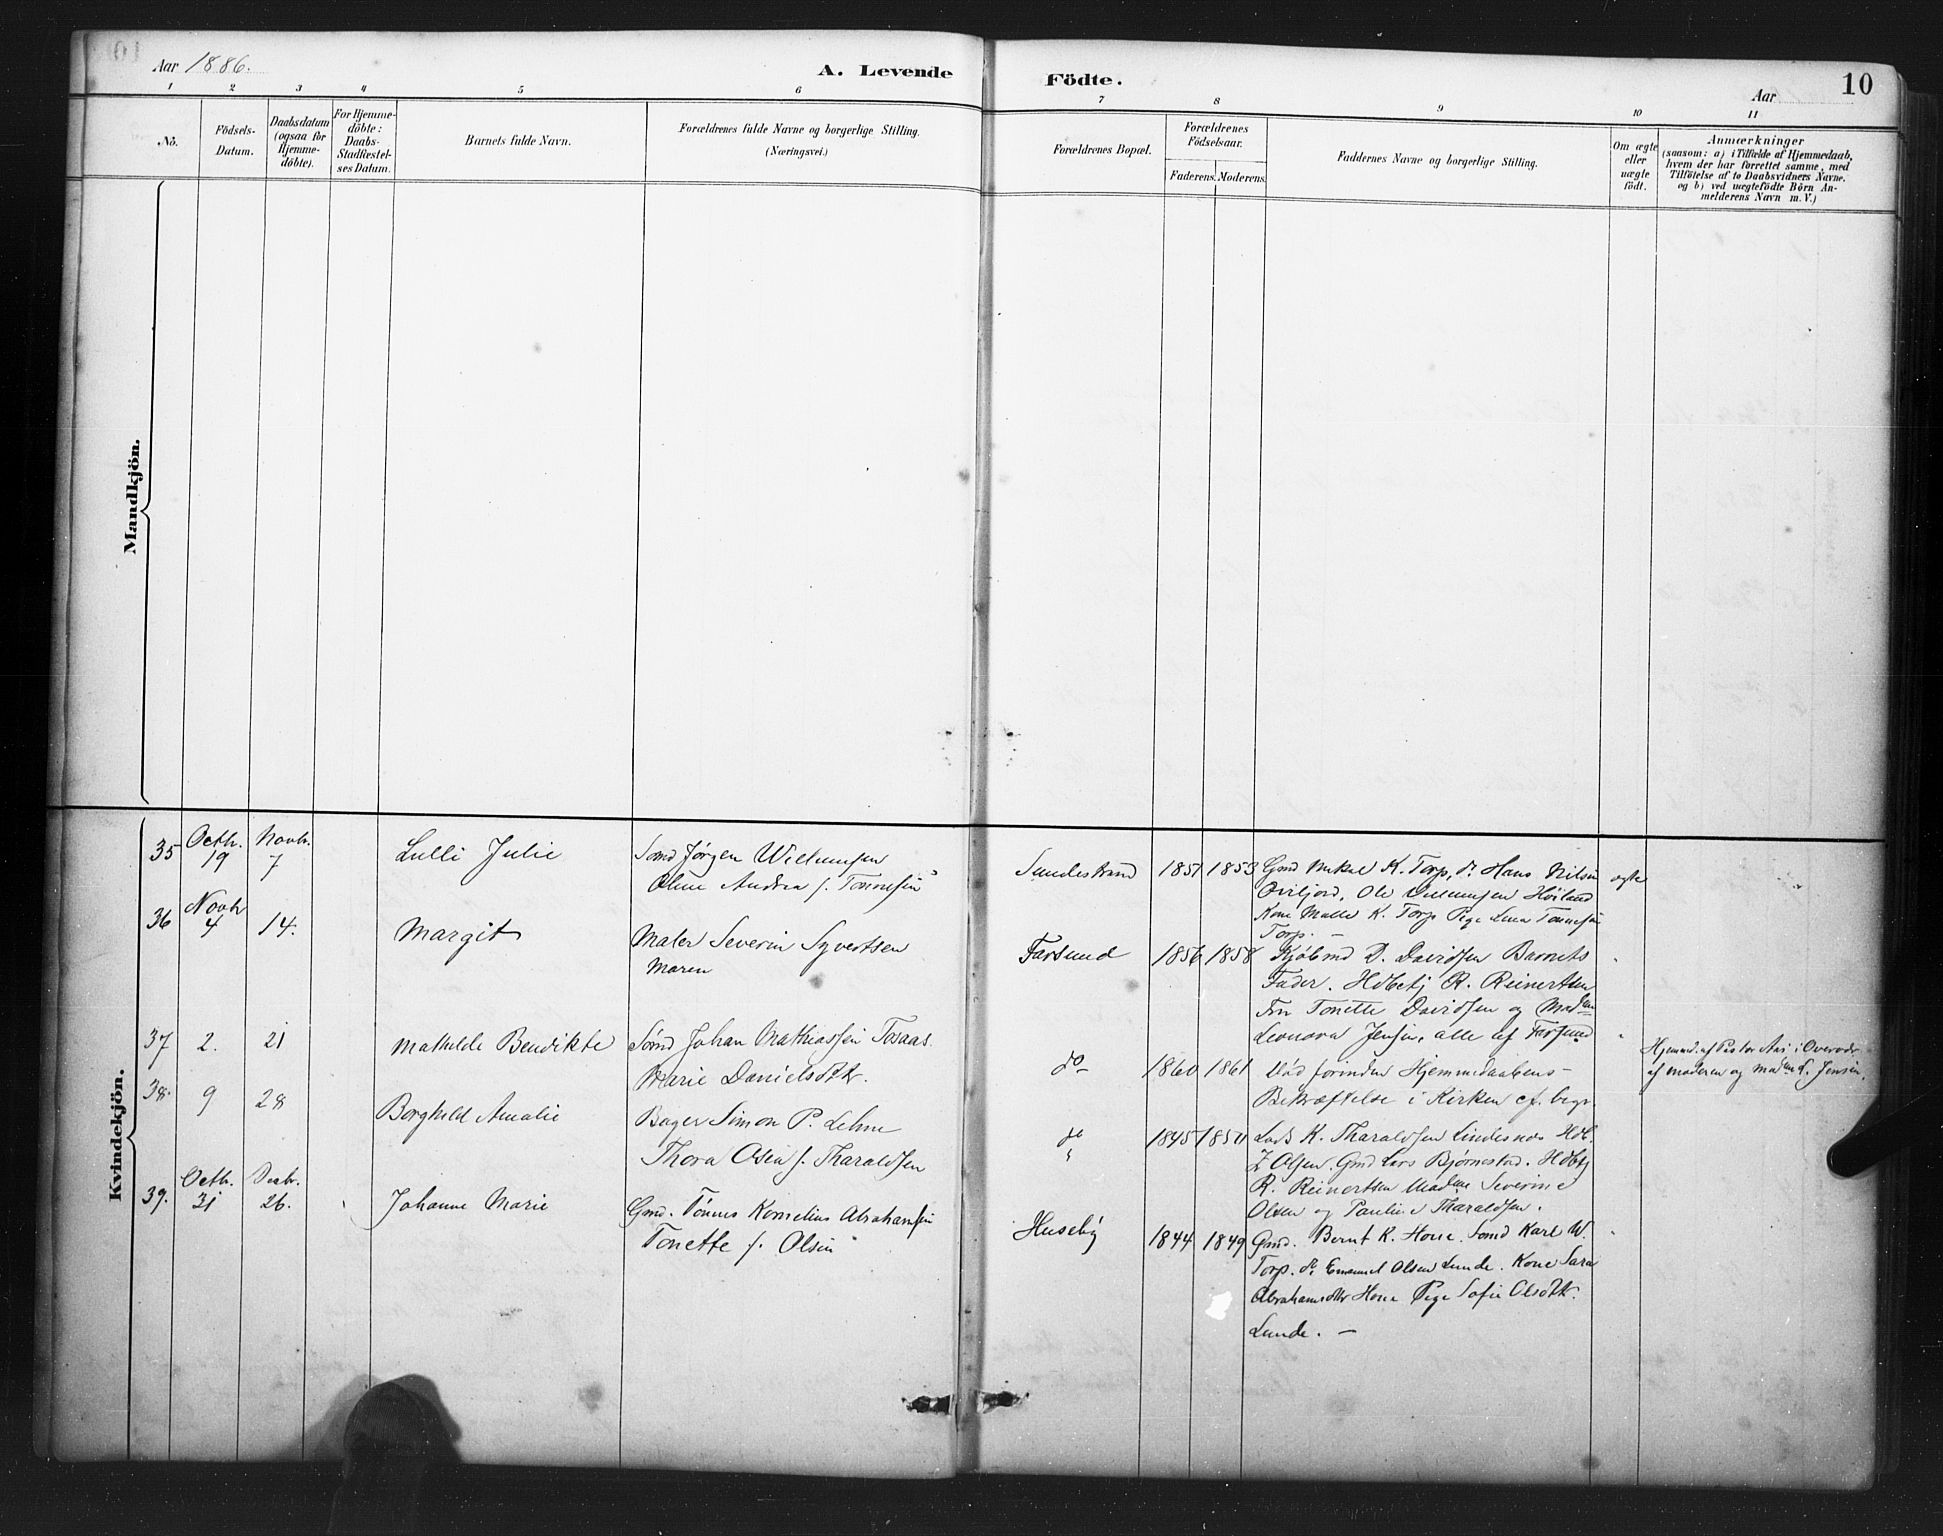 Aar 1886.
A. Levende
Födte.
Aar
10
1 2 3 4 5 6 7 8 9 10 11
No.
Födsels-
Datum.
Daabsdatum
(ogsaa for
Hjemme-
döbte).
For Hjemme-
döbte:
Daabs-
Stadfæstel-
ses Datum.
Barnets fulde Navn.
Forældrenes fulde Navne og borgerlige Stilling.
(Næringsvei.)
Forældrenes Bopæl.
Forældrenes
Födselsaar.
Faderens. Moderens.
Faddernes Navne og borgerlige Stilling.
Om ægte
eller
uægte
födt.
Anmærkninger
(saasom: a) i Tilfælde af Hjemmedaab,
hvem der har forrettet samme, med
Tilföielse af to Daabsvidners Navne.
og b) ved uægtefödte Börn An-
melderens Navn m. V.)
Mandkjön.
Kvindekjön.
35 Octbr. 19 Novbr. 7 Lulli Julie
Sömd Jørgen Willumsen
Oline Andrea f. Tønnesen
Sundestrand 1851 1853
Gmd Mikal K. Torp, do Hans Nilsen
Ole Willumsen Høiland
Kone Malle K. Torp Pige Lena Tønnesen
Torp. —
ægte
36 Novbr 4 14. Margit
Maler Severin Syvertsen
Maren
Farsund 1856 1858
Kjöbmd D. Davidsen Barnets
Fader. Hdbetj R. Reinertsen
Fru Tonette Davidsen og Madam
Leonora Jensen, alle af Farsund
37 2. 21 Mathilde Bendikte
Sömd Johan Mathiassen Tosaas.
Marie Danielsdtr.
do 1860 1861
Död forinden Hjemmedaabens —
Bekræftelse i Kirken cf. begr.
Hjemmd. af Pastor
af moderen og madm L. Jensen.
38. 9 28 Borghild Amalie
Bager Simon P. Lehne
Thora Osea f. Tharaldsen
do 1845
Lods K. Tharaldsen Lindesnæs
Olsen. Gmd Lars Bjørnestad. Hdbtj
R. Reinertsen Madme Severine
Olsen og Pauline Tharaldsen.
39. Octbr. 31 Decbr. 26. Johanne Marie
Gmd. Tönnes Kornelius Abrahamsen
Tonette f. Olsen
Huseby 1844 1849
Gmd. Bernt K. Hone. Sömd Karl W.
Torp. do Emanuel Olsen Lunde. Kone Sara
Abrahamsdtr Hone Pige Sofie Olsdtr.
Lunde. —